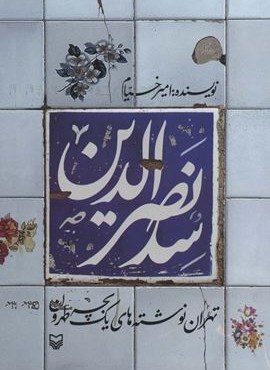 نویسنده: امیر خیام
سید نصرالدین
تهران نوشته‌های یک بچه طهرون